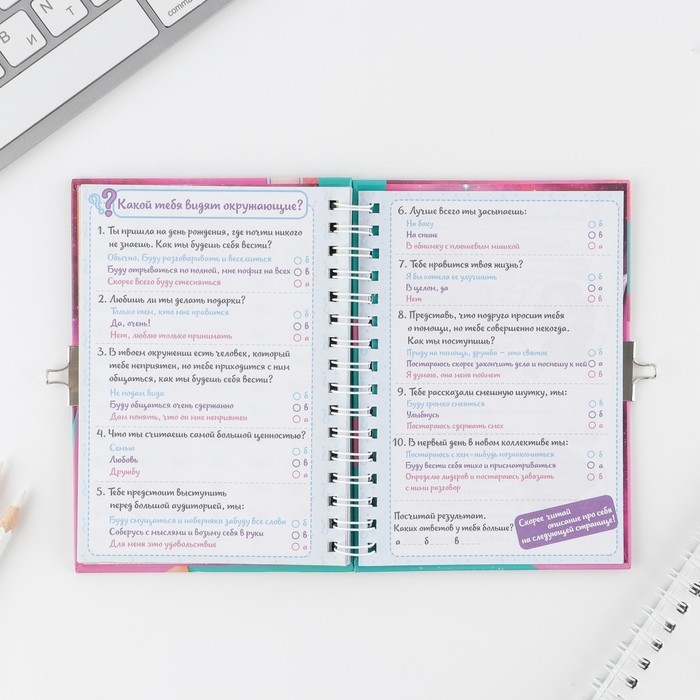 В
И
Ь
command
Какой тебя видят окружающие?
1. Ты пришла на день рождения, где почти никого
не знаешь. Как ты будешь себя вести?
Обычно. Буду разговаривать и веселиться б
Буду отрываться по полной, мне пофиг на всех в
Скорее всего буду стесняться а
2. Любишь ли ты делать подарки?
Только тем, кто мне нравится б
Да, очень! в
Нет, люблю только принимать а
3. В твоем окружении есть человек, который
тебе неприятен, но тебе приходится с ним
общаться, как ты будешь себя вести?
Не подам вида б
Буду общаться очень сдержанно в
Дам понять, что он мне неприятен а
4. Что ты считаешь самой большой ценностью?
Семью б
Любовь в
Дружбу а
5. Тебе предстоит выступить
перед большой аудиторией, ты:
Буду смущаться и наверняка забуду все слова б
Соберусь с мыслями и возьму себя в руки в
Для меня это удовольствие а
6. Лучше всего ты засыпаешь:
На боку б
На спине в
В обнимку с плюшевым мишкой а
7. Тебе нравится твоя жизнь?
Я бы хотела ее улучшить б
В целом, да а
Нет в
8. Представь, что подруга просит тебя
о помощи, но тебе совершенно некогда.
Как ты поступишь?
Приду на помощь, дружба – это святое б
Постараюсь скорее закончить дела и поспешу к ней а
Я думаю, она меня поймет в
9. Тебе рассказали смешную шутку, ты:
Буду громко смеяться б
Улыбнусь в
Постараюсь сдержать смех а
10. В первый день в новом коллективе ты:
Постараюсь с кем-нибудь познакомиться б
Буду вести себя тихо и присматриваться а
Определю лидеров и постараюсь завязать в
с ними разговор
Посчитай результат.
Каких ответов у тебя больше?
а б в
Скорее читай
описание про себя
на следующей странице!